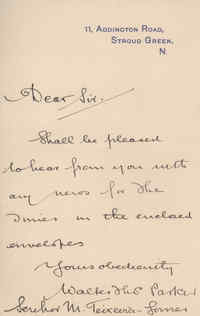 11, ADDINGTON ROAD,
STROUD GREEN,
N.
Dear Sir.
Shall be pleased
to hear from you with
any news for the
Times in the enclosed
envelopes
Yours obediently
Walter Parker
Senhor M. Teixeira-Gomes